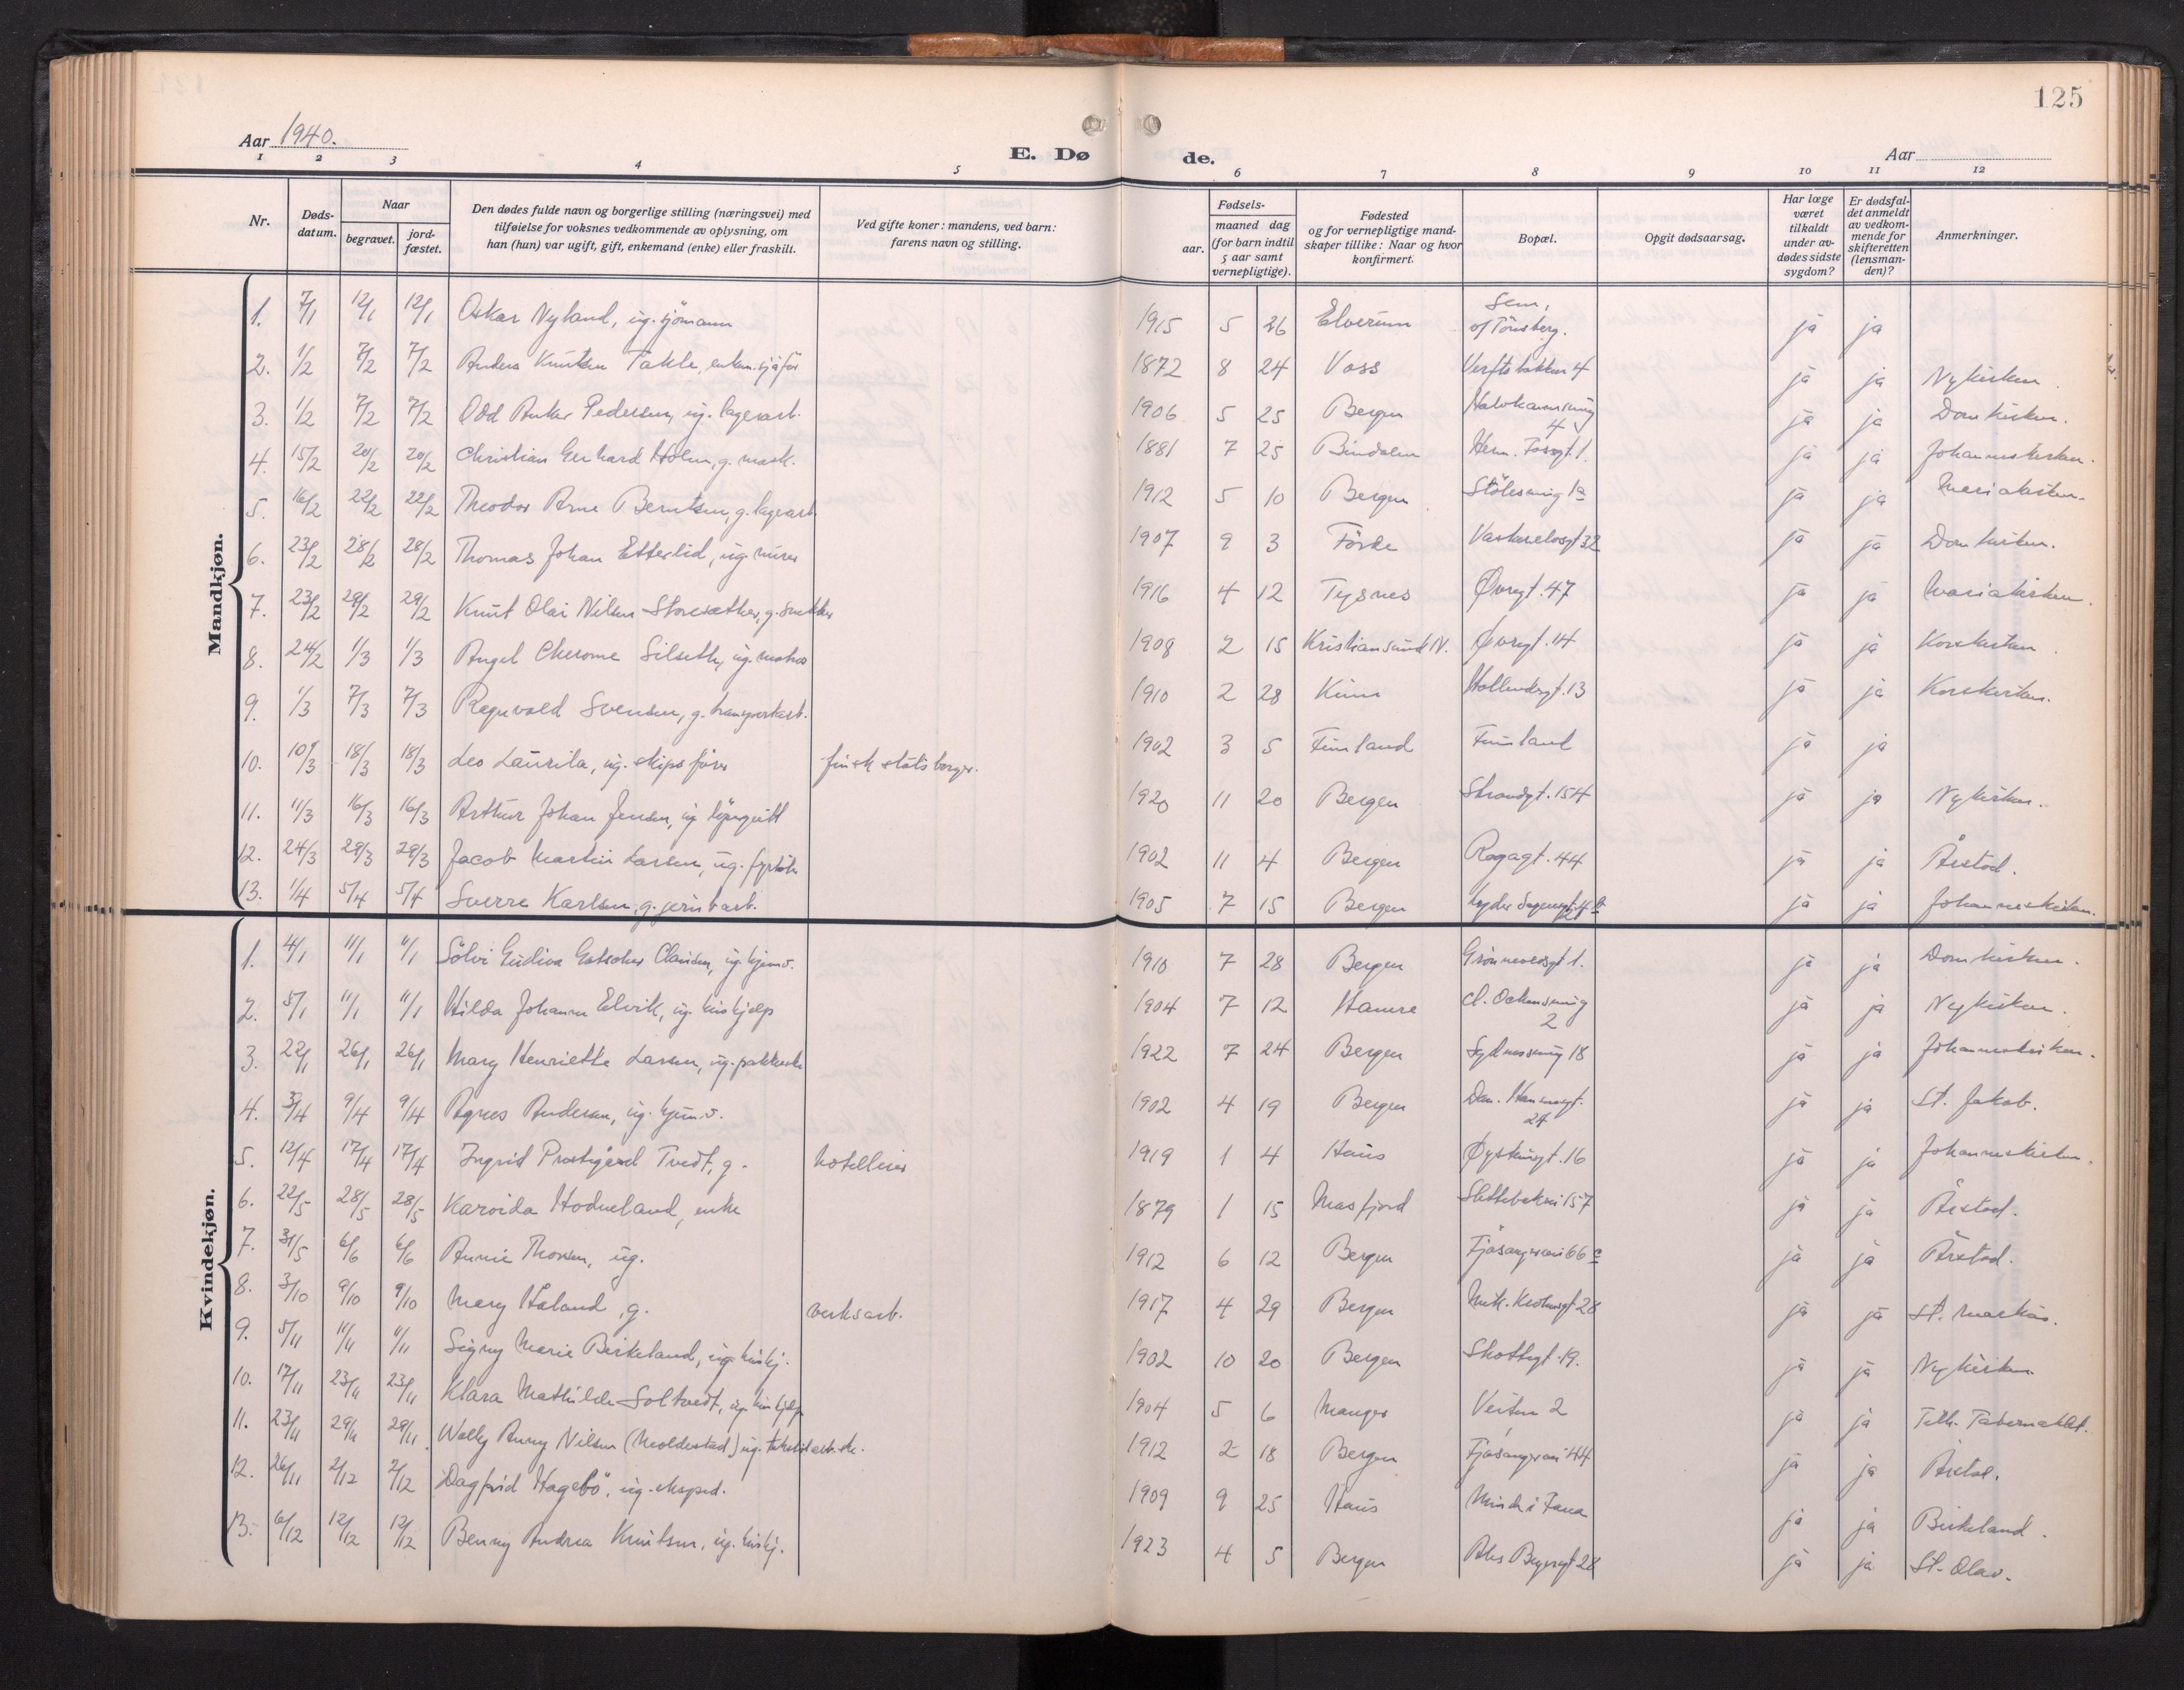 125
Aar 1940.
E. Dø de.
Aar
1 2 3 4 5 6 7 8 9 10 11 12
Nr.
Døds-datum.
Naar
begravet.
jord-fæstet.
Den dødes fulde navn og borgerlige stilling (næringsvei) med
tilføielse for voksnes vedkommende av oplysning, om
han (hun) var ugift, gift, enkemand (enke) eller fraskilt.
Ved gifte koner: mandens, ved barn:
farens navn og stilling.
Fødsels-
aar.
maaned dag
(for barn indtil
5 aar samt
vernepligtige).
Fødested
og for vernepligtige mand-
skaper tillike: Naar og hvor
konfirmert.
Bopæl.
Opgit dødsaarsag.
Har læge
været
tilkaldt
under av-
dødes sidste
sygdom?
Er dødsfal-
det anmeldt
av vedkom-
mende for
skifteretten
(lensman-
den)?
Anmerkninger.
Mandkjøn.
1. 7/1 12/1 12/1 Oskar Nyland, ug. sjömann 1915 5 26 Elverum Sem, v/Tönsberg. ja ja
2. 1/2 7/2 7/2 Anders Knutsen Takle, enkem. sjåför 1872 8 24 Voss Verftsbakken 4 ja ja Nykirken.
3. 1/2 7/2 7/2 Odd Anker Pedersen, ug. lagerarb. 1906 5 25 Bergen 4 ja ja Domkirken.
4. 15/2 20/2 20/2 Christian Gerhard Holm, g. mask. 1881 7 25 Bindalen Herm. Fossgt. 1. ja ja Johanneskirken.
5. 16/2 22/2 22/2 Theodor Arne Berntsen, g. lagerarb. 1912 5 10 Bergen Stölesmug 1a ja ja Mariakirken.
6. 23/2 28/2 28/2 Thomas Johan Etterlid, ug. murer 1907 9 3 Förde Vaskerelvsgt 32 ja ja Domkirken.
7. 23/2 29/2 29/2 Knut Olai Nilsen Storesæther, g. snekker 1916 4 12 Tysnes Øvregt. 47 ja ja Mariakirken.
8. 24/2 1/3 1/3 Angel Cherome Silseth, ug. matros 1908 2 15 Kristiansund N. Øvregt. 14 ja ja Korskirken.
9. 1/3 7/3 7/3 Ragnvald Svensen, g. transportarb. 1910 2 28 Kinn Hollendergt. 13 ja ja Korskirken.
10. 10/3 18/3 18/3 Leo Laurila, ug. skipsförer finsk statsborger. 1902 3 5 Finland Finland ja ja
11. 11/3 16/3 16/3 Arthur Johan Jensen, ug. löpegutt 1920 11 20 Bergen Strandgt. 154 ja ja Nykirken.
12. 24/3 29/3 29/3 Jacob Martin Larsen, ug. fyrböter 1902 11 4 Bergen 44 ja ja Årstad.
13. 1/4 5/4 5/4 Sverre Karlsen, g. jernbarb. 1905 7 15 Bergen Lyder Sagensgt. ja ja Johanneskirken.
Kvindekjøn.
1. 4/1 11/1 11/1 Sölvi Gudiva Clausen, ug. hjemv. 1910 7 28 Bergen Grönnevoldsgt 1. ja ja Domkirken.
2. 5/1 11/1 11/1 Hilda Johanne Elvik, ug. hushjelp 1904 7 12 Hamre 2 ja ja Nykirken.
3. 22/1 26/1 26/1 Mary Henriette Larsen, ug. pakkerske 1922 7 24 Bergen Sydnessmug 18 ja ja Johanneskirken.
4. 3/4 9/4 9/4 Agnes Andersen, ug. hjemv. 1902 4 19 Bergen Dan. Hansensgt. 24 ja ja St. Jakob.
5. 12/4 17/4 17/4 Ingrid Prestegård Tvedt, g. hotelleier 1919 1 4 Haus 16 ja ja Johanneskirken.
6. 22/5 28/5 28/5 Karoida Hodneland, enke 1879 1 15 Masfjord Slettebakvei 157 ja ja Årstad.
7. 31/5 6/6 6/6 Annie Thorsen, ug. 1912 6 12 Bergen Fjösangervei 66c ja ja Årstad.
8. 3/10 9/10 9/10 Mary Håland, g. verksarb. 1917 4 29 Bergen Mik. Krohnsgt 28 ja ja St. Markus.
9. 5/11 11/11 11/11 Signy Marie Birkeland, ug. hushj. 1902 10 20 Bergen Skottegt. 19. ja ja Nykirken
10. 17/11 23/11 23/11 Klara Mathilde Soltvedt, ug. hushjelp 1904 5 6 Manger Veiten 2 ja ja Tabernaklet.
11. 23/11 29/11 29/11 Wally Anny Nilsen (Moldestad) ug. 1912 2 18 Bergen Fjösangervei 44 ja ja Årstad.
12. 26/11 2/12 2/12 Dagfrid Hagebö, ug. eksped. 1909 9 25 Haus Minde i Fana ja ja Birkeland.
13. 6/12 12/12 12/12 Benny Andrea Knutsen, ug. hushj. 1923 4 5 Bergen 28 ja ja St. Olav.